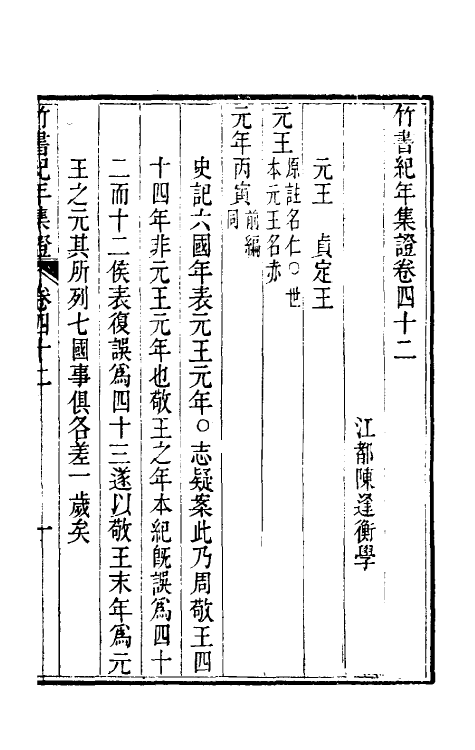 竹書紀年集證卷四十二
江都陳逢衡學
元王　貞定王
元王原註名仁○世本元王名赤
元年丙寅前編同
史記六國年表元王元年○志疑案此乃周敬王四
十四年非元王元年也敬王之年本紀旣誤爲四十
二而十二侯表復誤爲四十三遂以敬王末年爲元
王之元其所列七國事俱各差一歲矣
竹書紀年集證　卷四十二　一